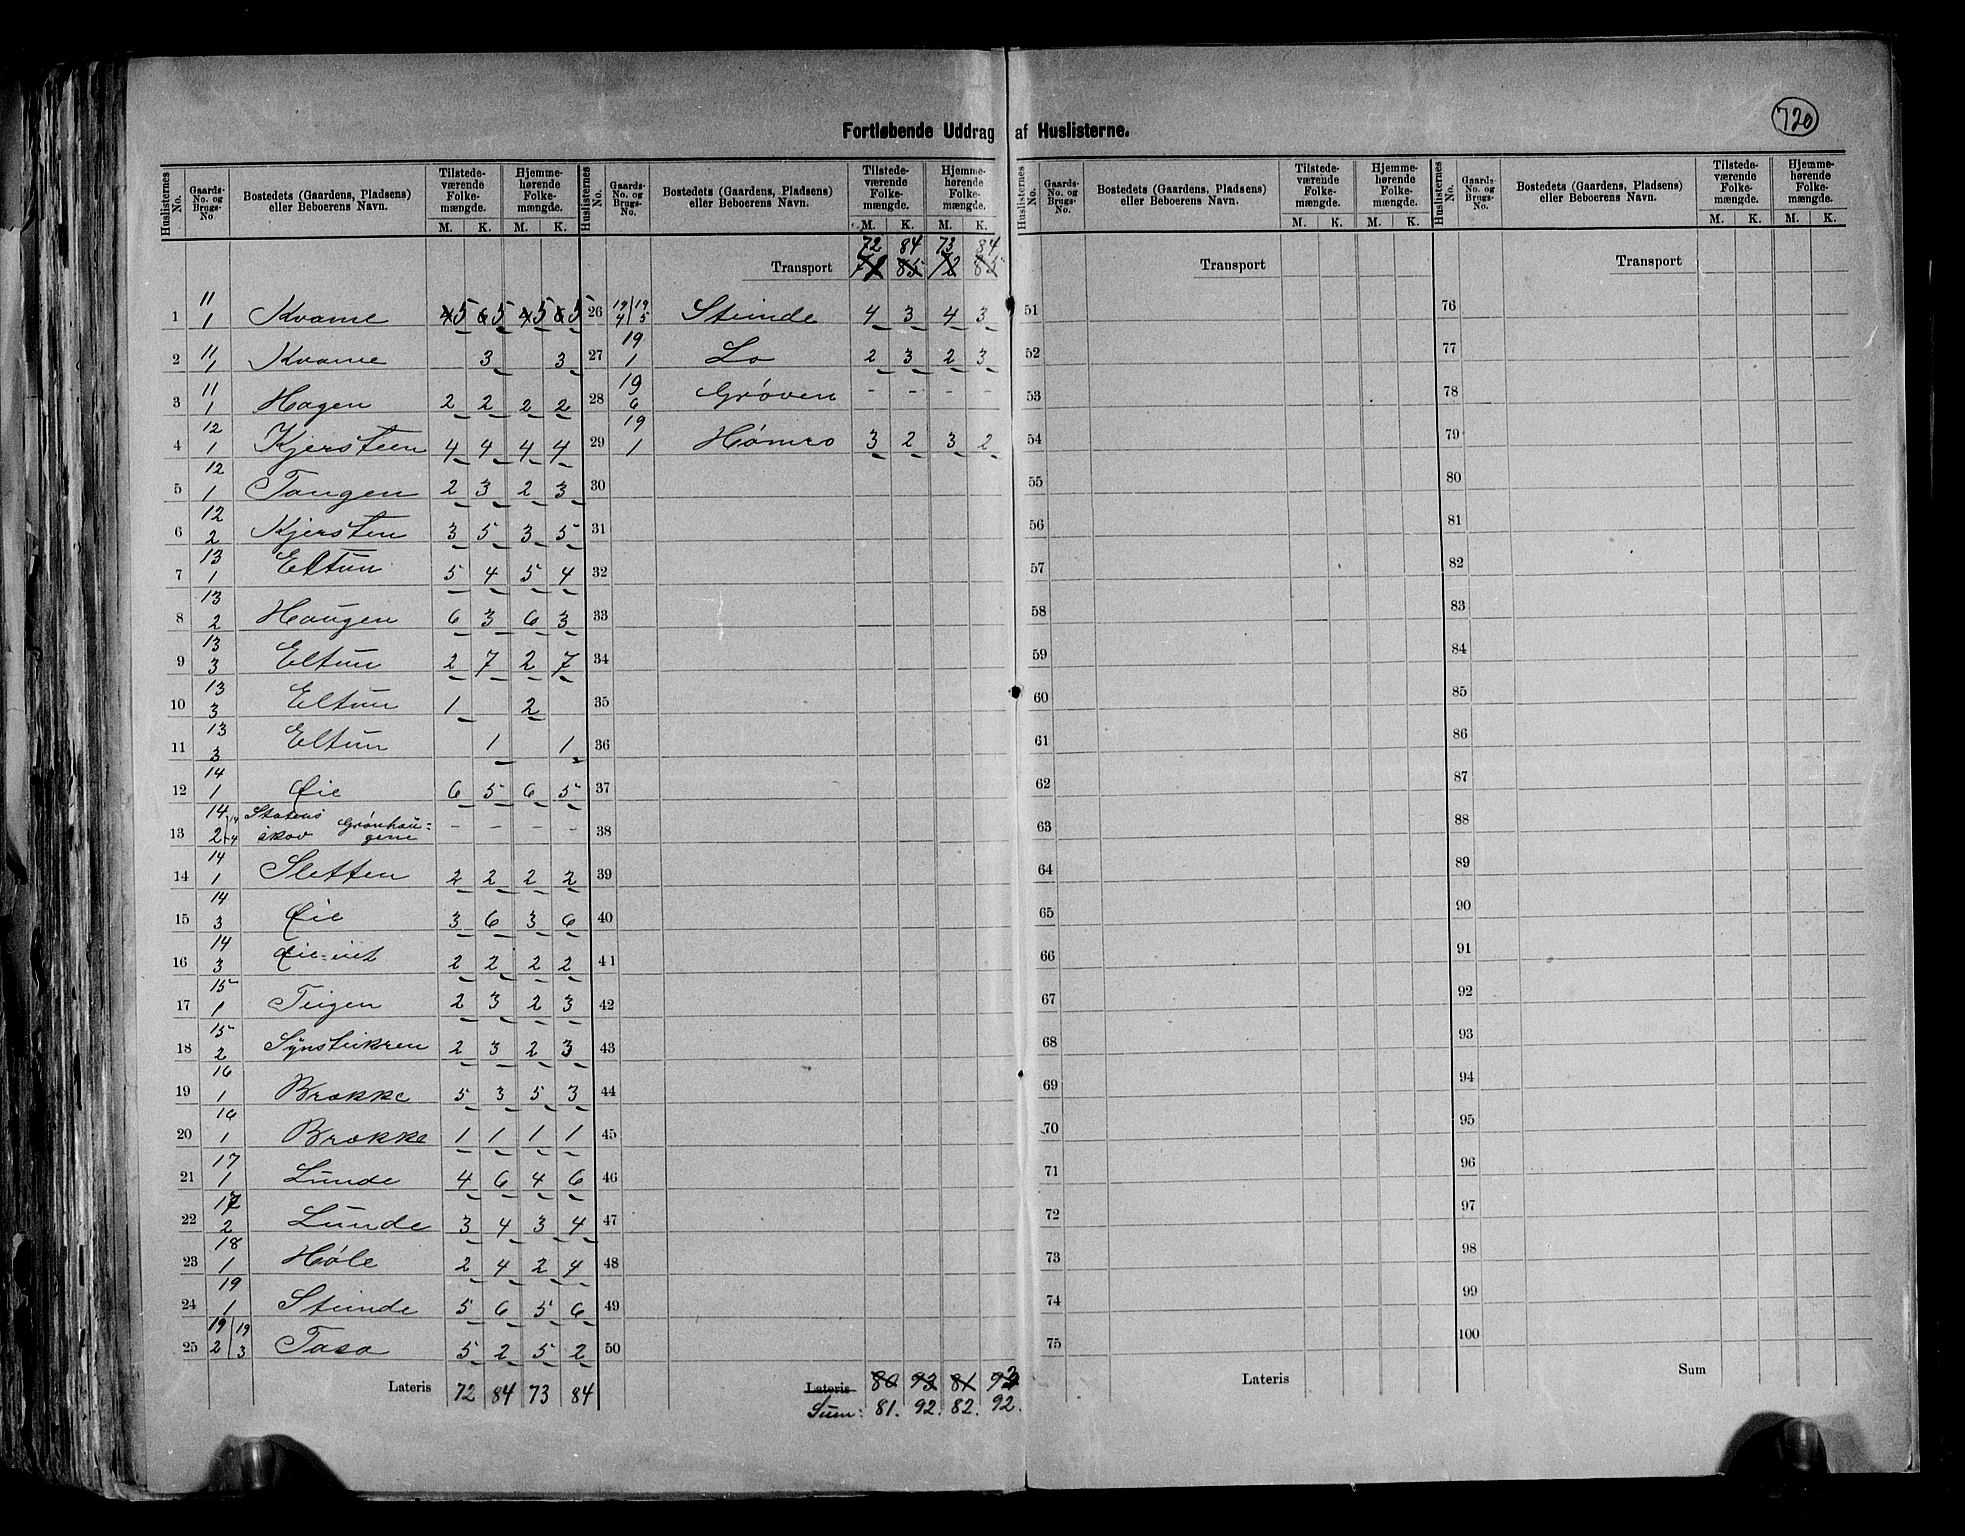 720
Fortløbende Uddrag af Huslisterne.
Huslisternes No. Gaards-No. og Brugs-No Bostedets (Gaardens, Pladsens) eller Beboerens Navn. Tilstedeværende Folkemængde. M. K. Hjemmehørende Folkemængde. M. K.
1 11/1 Kvame 4 5 6 5 4 5 6 5
2 11/1 Kvame 3 3
3 11/1 Hagen 2 2 2 2
4 12/1 Kjersteen 4 4 4 4
5 12/1 Tangen 2 3 2 3
6 12/2 Kjersten 3 5 3 5
7 13/1 Eltun 5 4 5 4
8 13/2 Haugen 6 3 6 3
9 13/3 Eltun 2 7 2 7
10 13/3 Eltun 1 2
11 13/3 Eltun 1 1
12 14/1 Øie 6 5 6 5
13 14/2 14/4 Statens skov Grønhaugene - - - -
14 14/1 Sletten 2 2 2 2
15 14/3 Øie 3 6 3 6
16 14/3 2 2 2 2
17 15/1 Teigen 2 3 2 3
18 15/2 2 3 2 3
19 16/1 Brække 5 3 5 3
20 16/1 Brække 1 1 1 1
21 17/1 Lunde 4 6 4 6
22 17/2 Lunde 3 4 3 4
23 18/1 Høle 2 4 2 4
24 19/1 Stunde 5 6 5 6
25 19/2 19/3 Tasa 5 2 5 2
Lateris 72 84 73 84
Huslisternes No. Gaards-No. og Brugs-No. Bostedets (Gaardens, Pladsens) eller Beboerens Navn. Tilstedeværende Folkemængde. M. K. Hjemmehørende Folkemængde. M. K.
72 84 73 84
Transport 71 85 72 85
26 19/4 19/5 Stunde 4 3 4 3
27 19/1 Lo 2 3 2 3
28 19/6 Grøven - - - -
29 19/1 3 2 3 2
30
31
32
33
34
35
36
37
38
39
40
41
42
43
44
45
46
47
48
49
50
Lateris 80 93 81 93
Sum: 81. 92. 82. 92.
Huslisternes No. Gaards-No. og Brugs-No. Bostedets (Gaardens, Pladsens) eller Beboerens Navn. Tilstedeværende Folkemængde. M. K. Hjemmehørende Folkemængde. M. K.
Transport
51
52
53
54
55
56
57
58
59
60
61
62
63
64
65
66
67
68
69
70
71
72
73
74
75
Lateris
Huslisternes No. Gaards-No. og Brugs-No. Bostedets (Gaardens, Pladsens) eller Beboerens Navn. Tilstedeværende Folkemængde. M. K. Hjemmehørende Folkemængde. M. K.
Transport
76
77
78
79
80
81
82
83
84
85
86
87
88
89
90
91
92
93
94
95
96
97
98
99
100
Sum